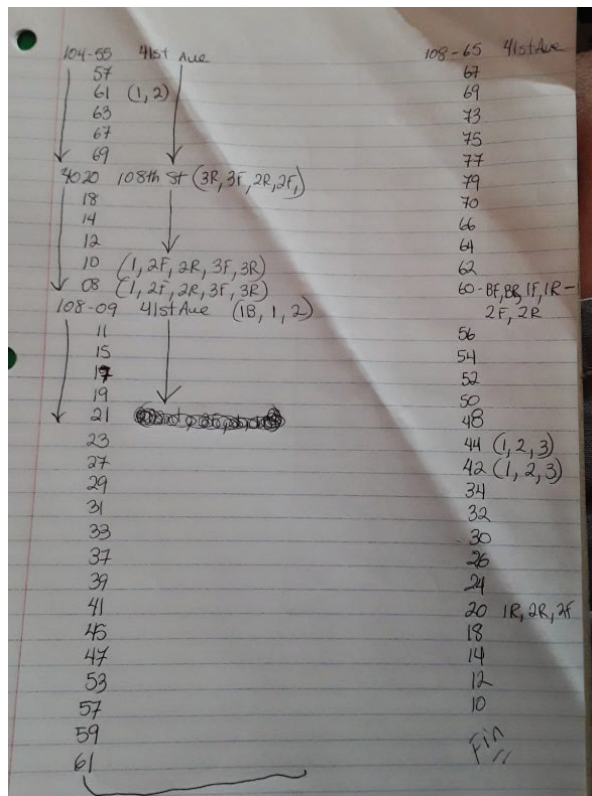 104-55 41st Ave
57
61 (1, 2)
63
67
69
4020 108th St (3R, 3F, 2R, 2F,)
18
14
12
10 (1, 2F, 2R, 3F, 3R)
08 (1, 2F, 2R, 3F, 3R)
108-09 41st Ave (1B, 1, 2)
11
15
17
19
21
23
27
29
31
33
37
39
41
45
47
53
57
59
61
108-65 41st Ave
67
69
73
75
77
79
70
66
64
62
60-BF, BR, 1F, 1R-
2F, 2R
56
54
52
50
48
44 (1, 2, 3)
42 (1, 2, 3)
34
32
30
26
24
20 1R, 2R, 2F
18
14
12
10
Fin